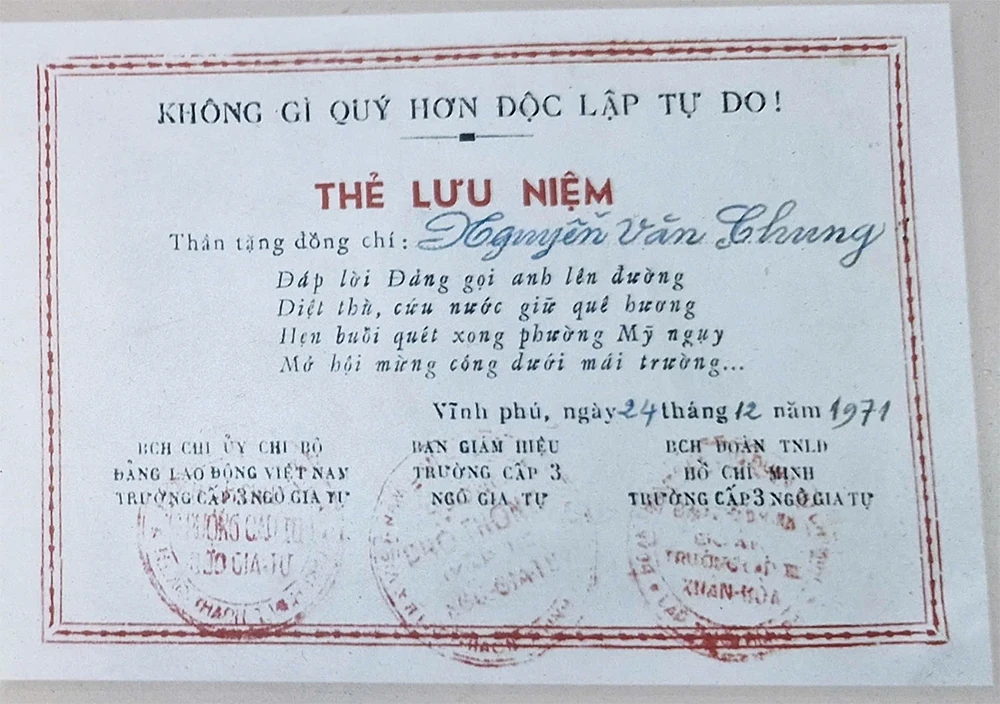 KHÔNG GÌ QUÝ HƠN ĐỘC LẬP TỰ DO!
THẺ LƯU NIỆM
Thân tặng đồng chí: Nguyễn Văn Chung
Đáp lời Đảng gọi anh lên đường
Diệt thù, cứu nước giữ quê hương
Hẹn buổi quét xong phường Mỹ ngụy
Mở hội mừng công dưới mái trường...
Vĩnh phú, ngày 24 tháng 12 năm 1971
BCH CHI ỦY CHI BỘ
ĐẢNG LAO ĐỘNG VIỆT NAM
TRƯỜNG CẤP 3 NGÔ GIA TỰ
BAN GIÁM HIỆU
TRƯỜNG CẤP 3
NGÔ GIA TỰ
BCH ĐOÀN TNLĐ
HỒ CHÍ MINH
TRƯỜNG CẤP 3 NGÔ GIA TỰ
TRƯỜNG CẤP III